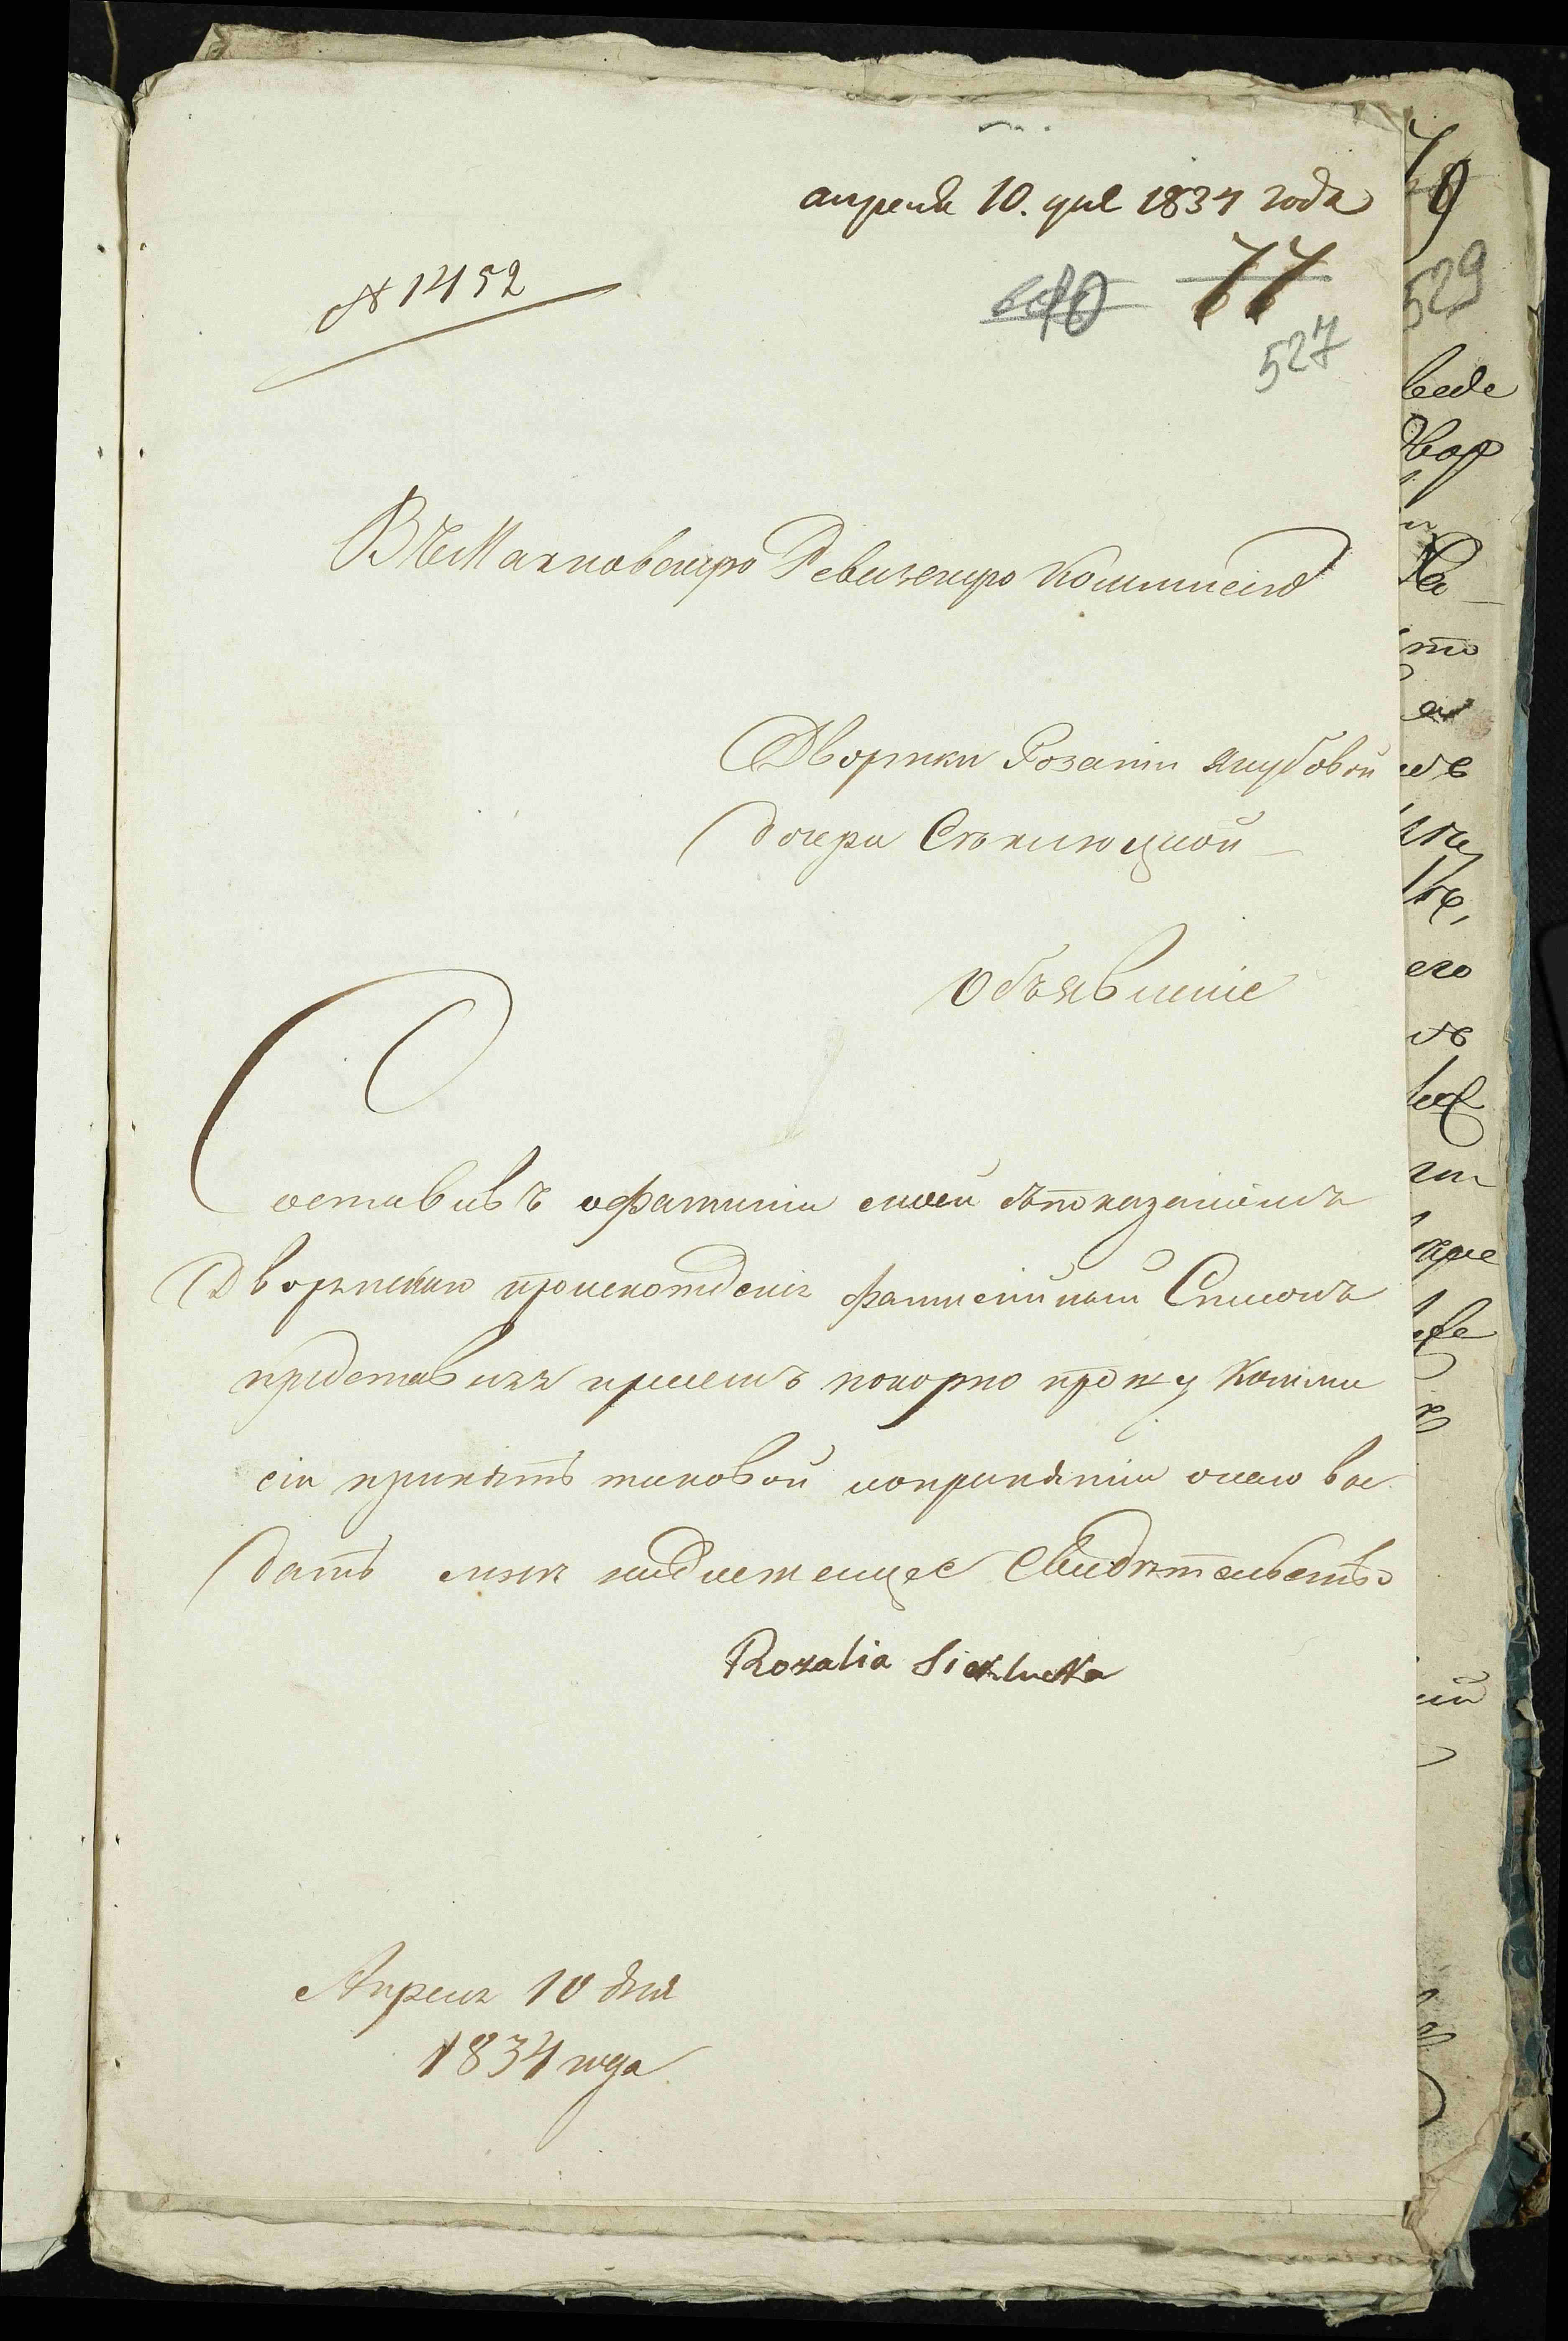 апреля 10. дня 1834 года
№ 1452
77
527
Въ Махновскую Ревизскую Коммисію
Дворянки Розаліи Якубовой
дочери Сѣклюцкой
Объявленіе
Составивъ о фамиліи своей съ показаніемъ
Дворянскаго происхожденія фамилійный Списокъ
представляя присемъ покорно прошу Комми
сіи принять таковой и о принятіи онаго вы
дать мнѣ надлежащее Свидѣтельство
Rozalia Sieklucka
Апреля 10 дня
1834 года
529
его